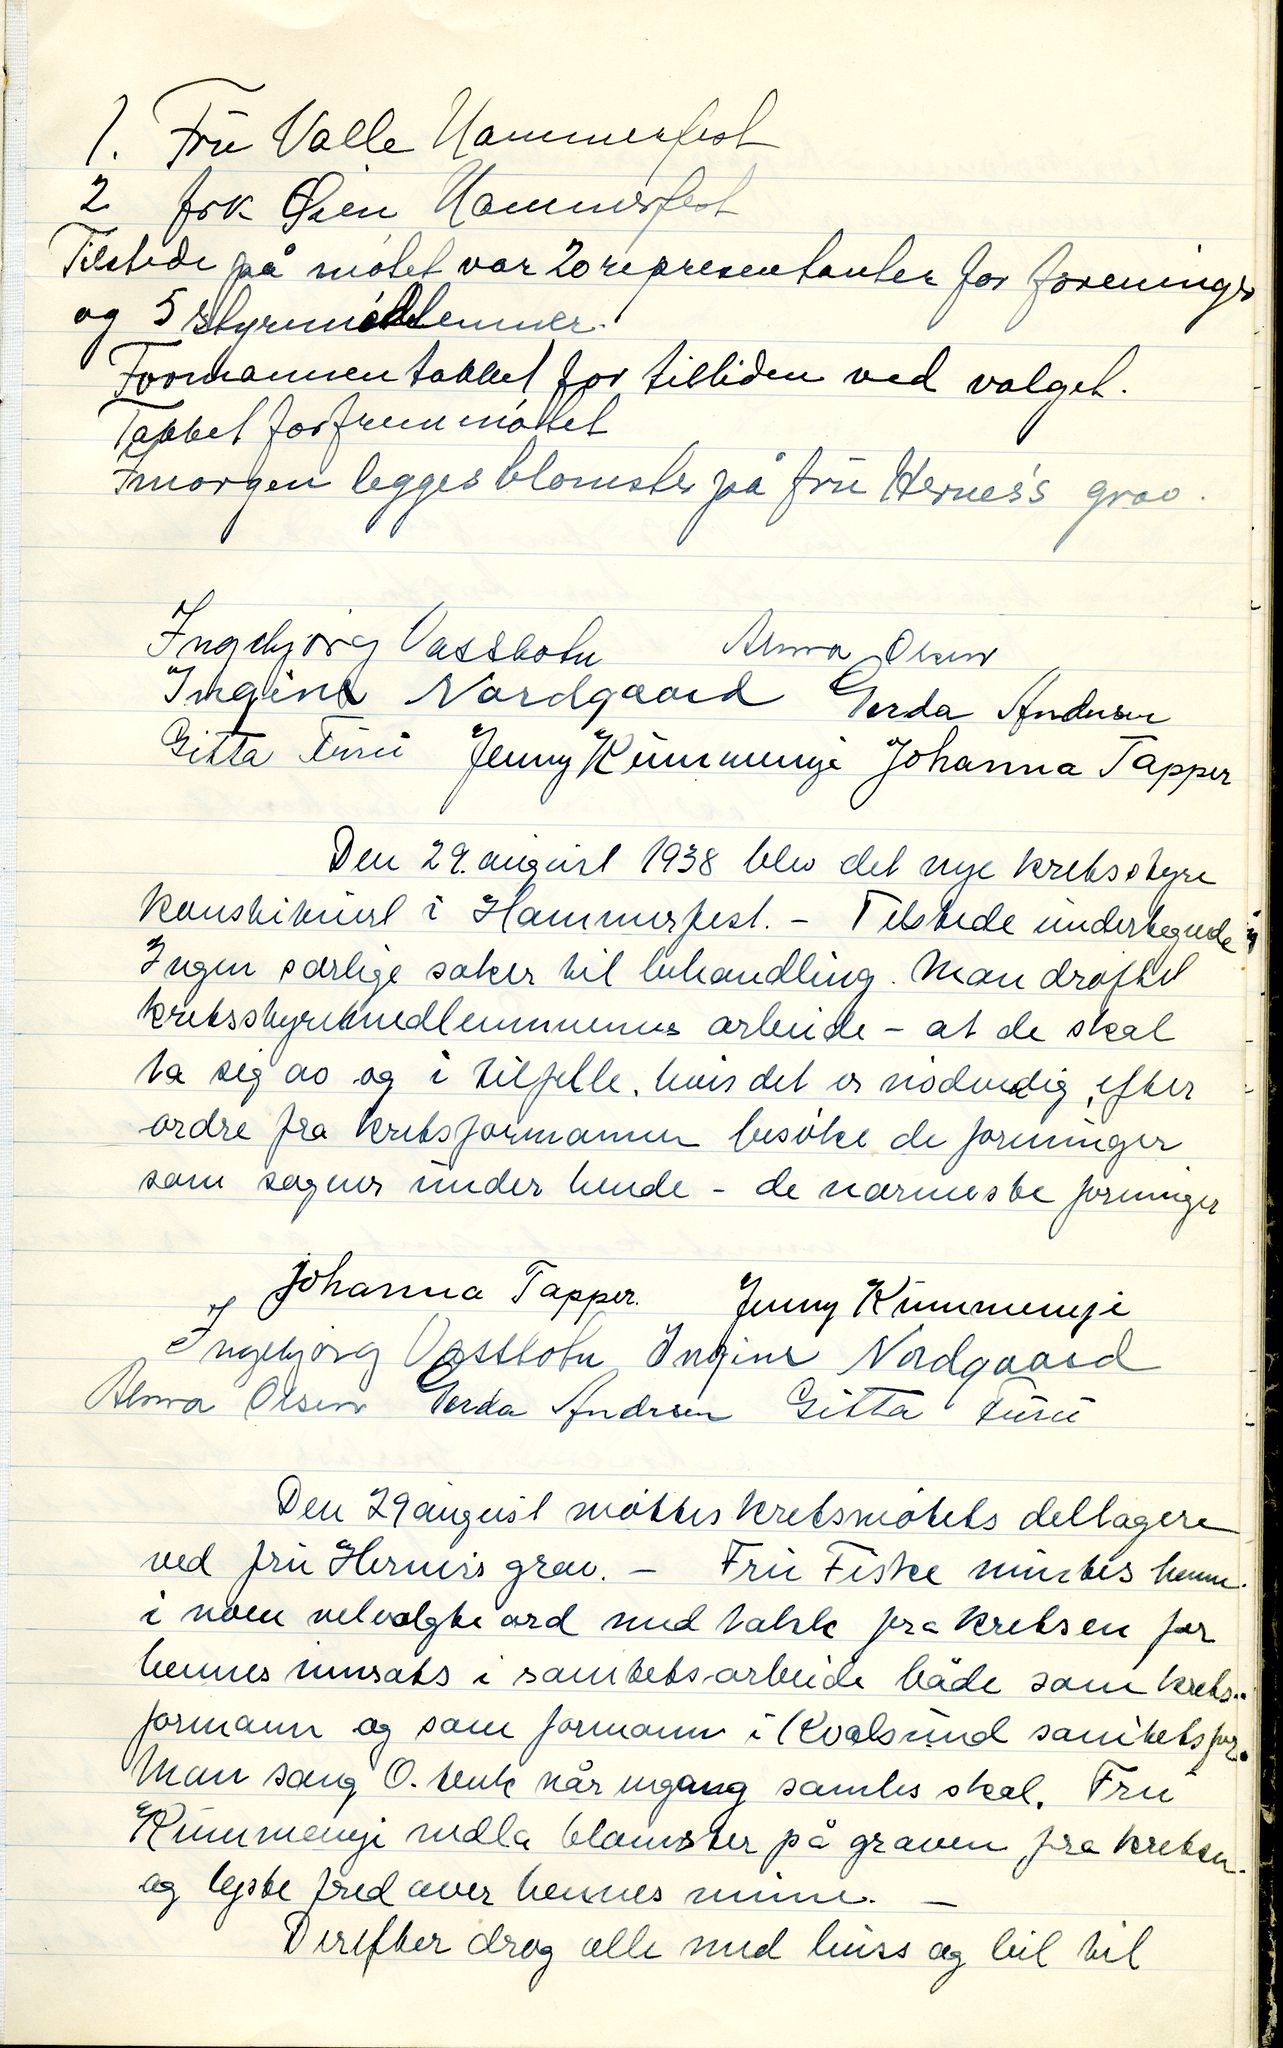 1. Fru Valle Hammerfest
2 frk Øien Hammerfest
Tilstede på møtet var 20 representanter for foreninger
og 5 styremedlemmer.
Formannen takket for tilliden ved valget.
Takket for fremmøtet
Imorgen legges blomster på fru Hernes's grav.
Ingebjørg Vassbotn Alma Olsen
Ingine Nordgaard Gerda Andersen
Gitta Furu Jenny Kummeneje Johanna Tapper
Den 29. august 1938 blev det nye kretsstyre
konstituert i Hammerfest. - Tilstede undertegnede
Ingen særlige saker til behandling. Man drøftet
kretsstyremedlemmenes arbeide - at de skal
ta sig av og i tilfelle, hvis det er nødvendig, efter
ordre fra kretsformannen besøke de foreninger
som sogner under hende - de nærmeste foreninger
Johanna Tapper. Jenny Kummeneje
Ingebjørg Vassbotn Ingine Nordgaard
Alma Olsen Gerda Andersen Gitta Furu
Den 29 august møttes kretsmøtets deltagere
ved fru Hernes's grav. - Fru Fiske mintes henne
i noen velvalgte ord med takk fra kretsen for
hennes innsats i sanitetsarbeide både som krets-
formann og som formann i Kvalsund sanitetsfor.
Man sang O. tenk når engang samles skal. Fru
Kummeneje nedla blomster på graven fra kretsen
og lyste fred over hennes minne. -
Derefter drog alle med buss og bil til